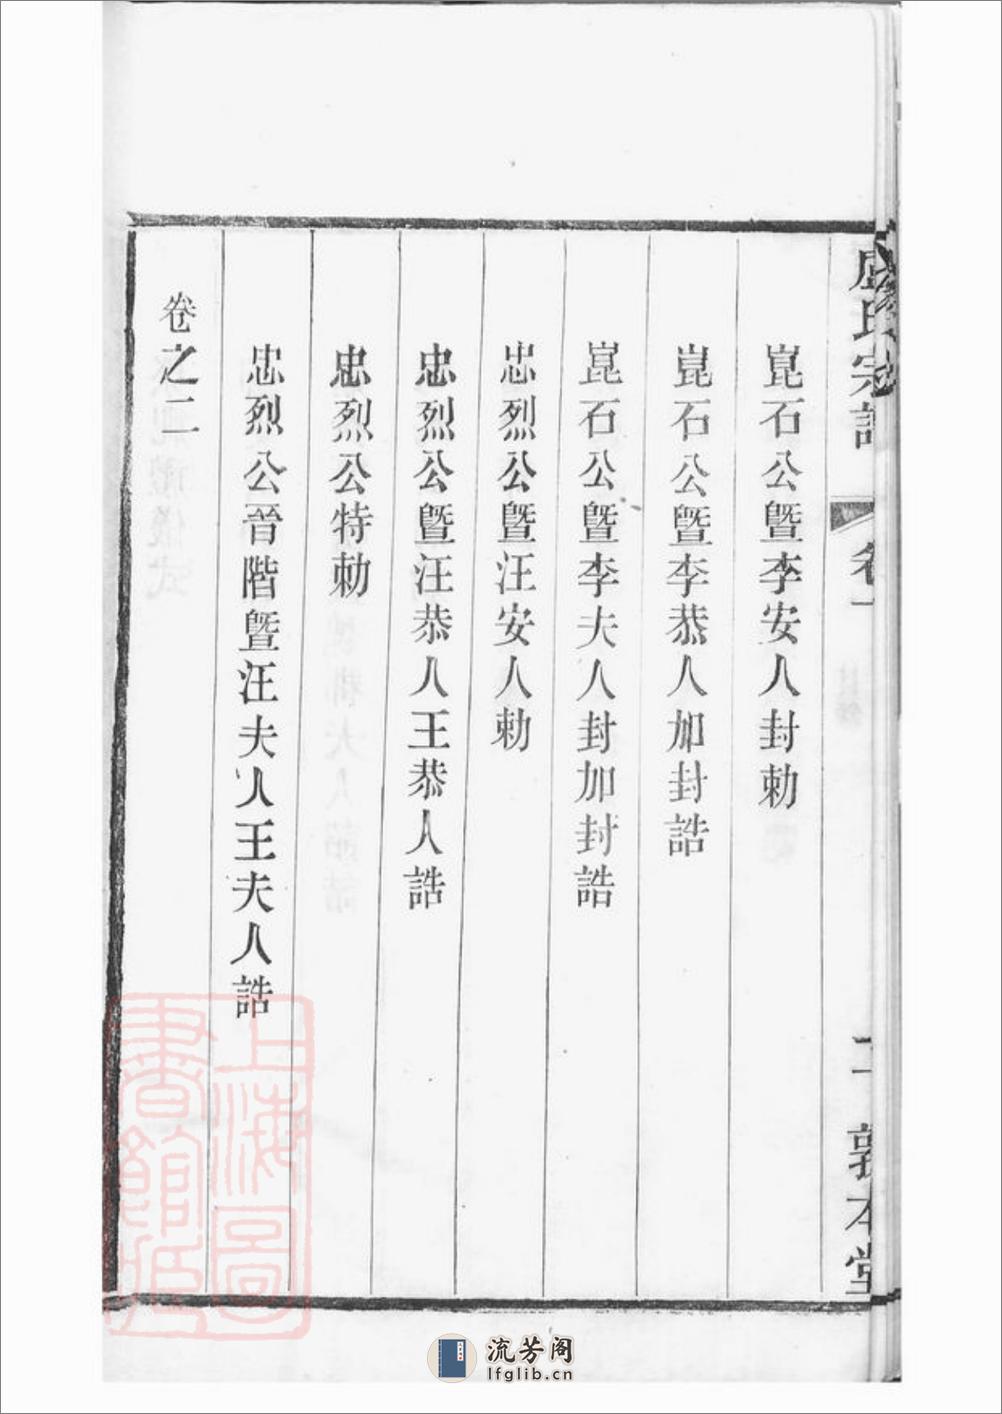 崑石公暨李安人封勅
崑石公暨李恭人加封誥
崑石公暨李夫人封加封誥
忠烈公暨汪安人勅
忠烈公暨汪恭人王恭人誥
忠烈公特勅
忠烈公晉階暨汪夫人王夫人誥
卷之二
盧氏宗譜
卷一
二
敦本堂
上海圖書館藏
流芳阁
lfglib.cn